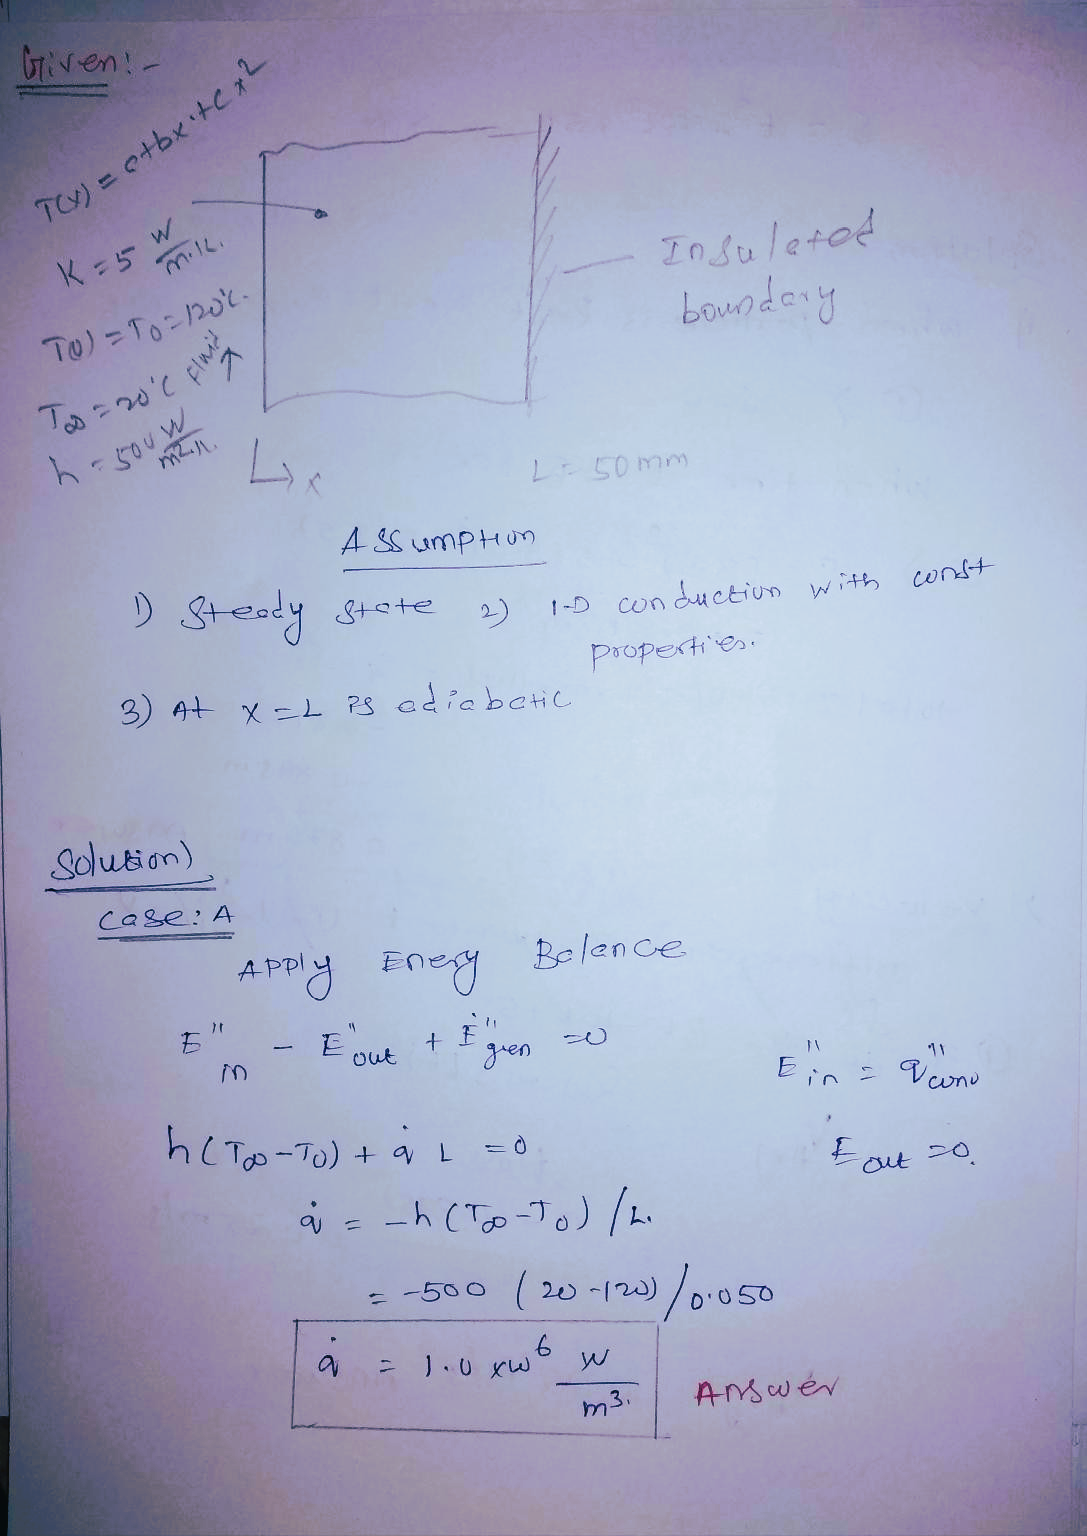 Given:-
T(x) = a+bx+cx²
K = 5 W/m.k.
T(0) = To = 120°C.
T∞ = 20°C Fluid ↑
h = 500 W/m².k.
Insulated
boundary
x
L = 50mm
Assumption
1) Steady state 2) 1-D conduction with const
properties.
3) At x=L is adiabatic
Solution)
Case: A
Apply Enery Balance
E"in - E"out + Ė"gen =0
E"in = q"conv
h(T∞-To) + q̇ L = 0
Ė out =0.
q̇ = -h(T∞-To)/L.
= -500 (20-120)/0.050
q̇ = 1.0 x10⁶ W/m³.
Answer